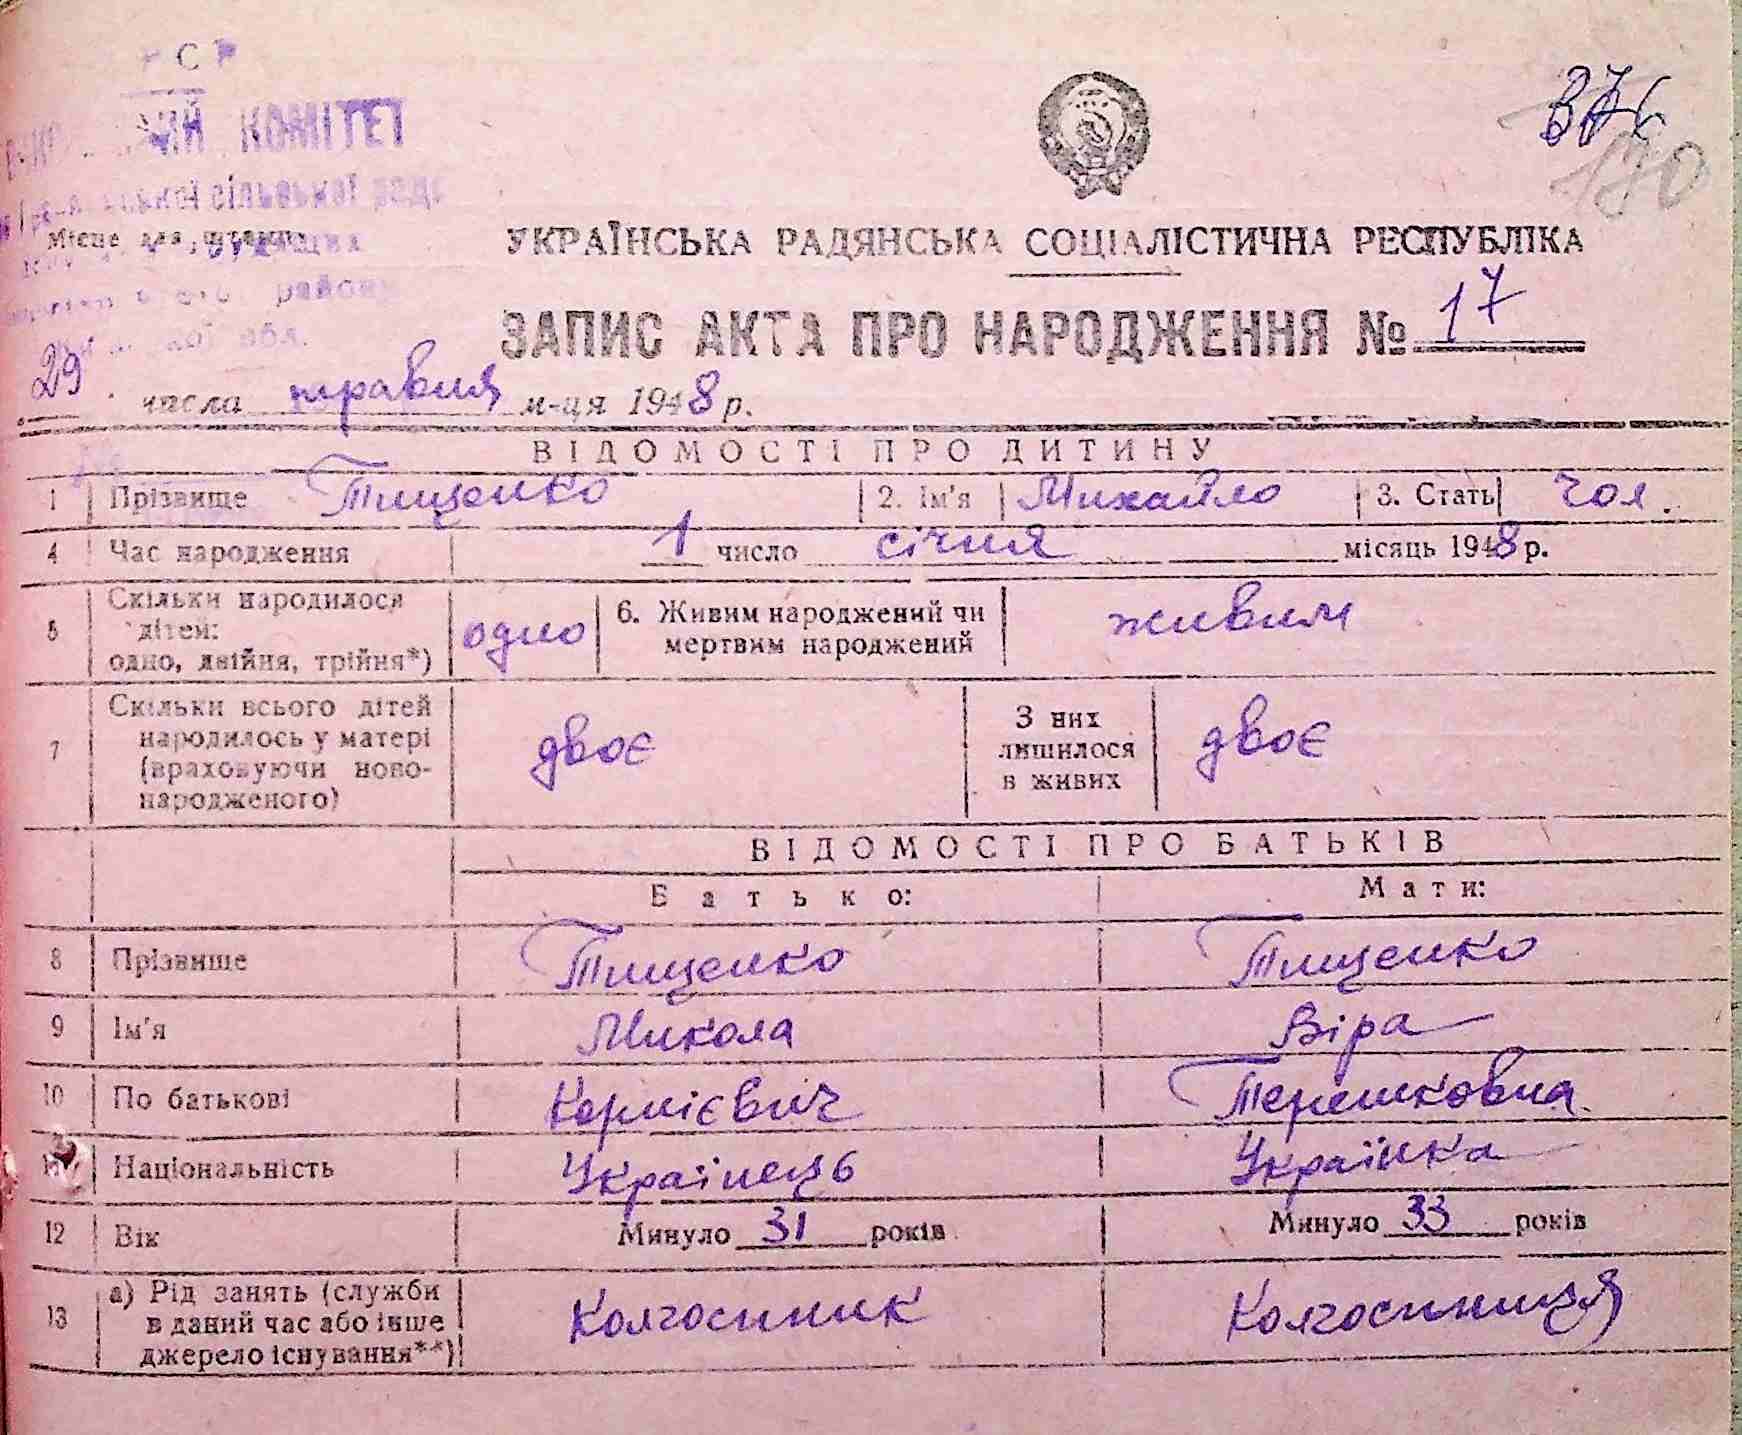 КОМІТЕТ
сільської
Місце для штампа
району
обл.
376
180
УКРАЇНСЬКА РАДЯНСЬКА СОЦІАЛІСТИЧНА РЕСПУБЛІКА
ЗАПИС АКТА ПРО НАРОДЖЕННЯ № 17
29 числа травня м-ця 1948 р.
ВІДОМОСТІ ПРО ДИТИНУ
1 Прізвище Тищенко 2. Ім'я Михайло 3. Стать чол.
4 Час народження 1 число січня місяць 1948 р.
5 Скільки народилося дітей: одно, двійня, трійня*) одно 6. Живим народжений чи мертвим народжений живим
7 Скільки всього дітей народилось у матері (враховуючи ново-народженого) двоє З них лишилося в живих двоє
ВІДОМОСТІ ПРО БАТЬКІВ
Батько: Мати:
8 Прізвище Тищенко Тищенко
9 Ім'я Микола Віра
10 По батькові Корнієвич Терешковна
11 Національність Українець Українка
12 Вік Минуло 31 років Минуло 33 років
13 а) Рід занять (служби в даний час або інше джерело існування**) Колгоспник Колгоспниця